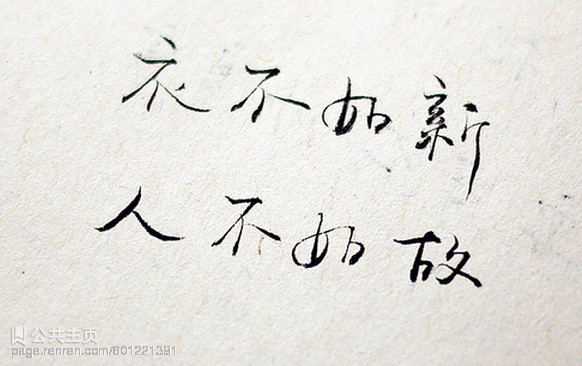 衣不如新
人不如故
公共主页
page.renren.com/601221391